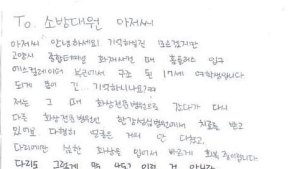 To. 소방대원 아저씨
아저씨 안녕하세요! 기억하실진 모르겠지만
고양시 종합터미널 화재사건 때 홈플러스 입구
에스컬레이터 부근에서 구조 된 17세 여학생입니다
되게 많이 긴... 기억하시나요??
저는 그 때 화상전문병원으로 갔다가 다시
다른 화상전문병원인 한강성심병원에서 치료를 받고
있어요. 다행히 얼굴은 거의 안 다쳤고,
다리에만 심한 화상을 입어서 빠르게 회복 중이랍니다
다리도 그렇게 막 이런 건 아니라